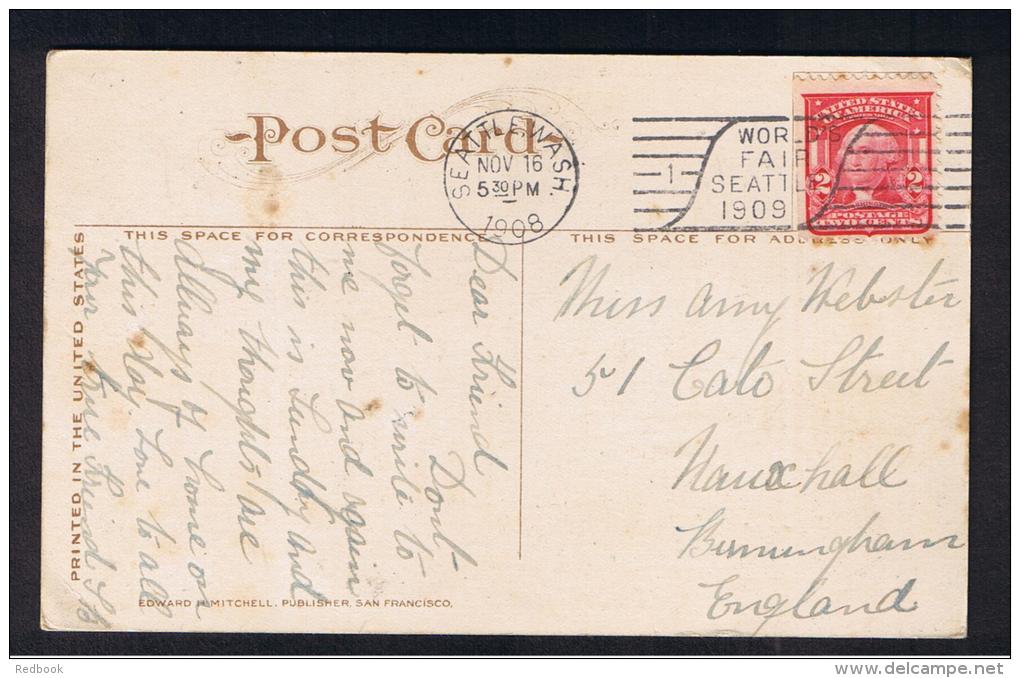 Post Card
SEATTLE, WASH.
NOV 16
5 30 PM
1908
1
WORLD'S
FAIR
SEATTLE
1909
UNITED STATES
OF AMERICA
2 2
POSTAGE
TWO CENTS
THIS SPACE FOR CORRESPONDENCE
THIS SPACE FOR ADDRESS ONLY
PRINTED IN THE UNITED STATES
Dear Friend
Dont
forget to write to
me now and again
this is Sunday and
my thoughts are
allways of home on
this day. Love to all
Your True Friend
Miss Amy Webster
51 Cato Street
Vauxhall
Birmingham
England
EDWARD H. MITCHELL, PUBLISHER, SAN FRANCISCO.
Redbook
www.delcampe.net